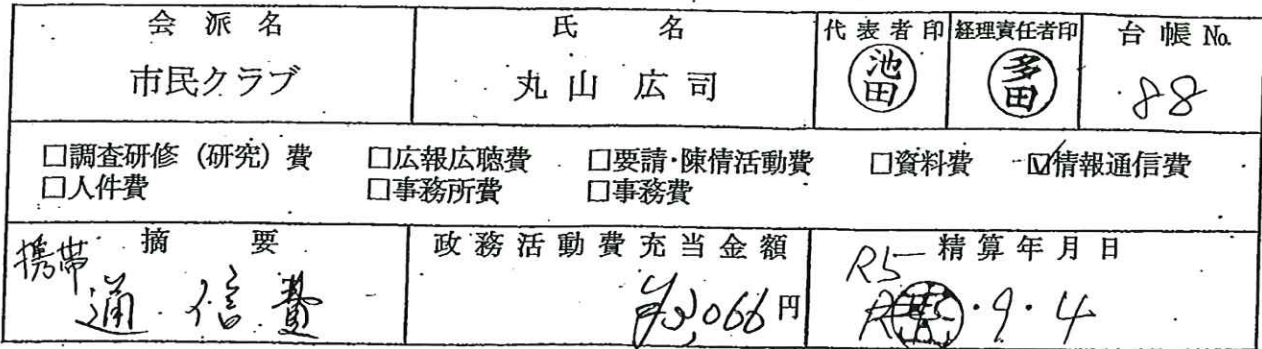 会派名 氏名 代表者印 経理責任者印 台帳No.
市民クラブ 丸山広司 池田 多田 88
□調査研修(研究)費 □広報広聴費 □要請・陳情活動費 □資料費 ☑情報通信費
□人件費 □事務所費 □事務費
摘要 政務活動費充当金額 精算年月日
携帯 R5
通信費 ¥3,066円 ・9・4